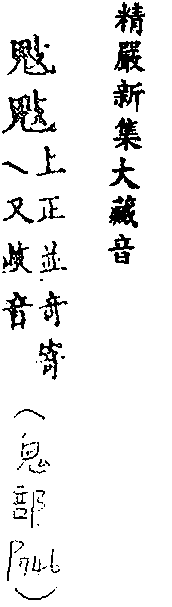 精嚴新集大藏音
上正並奇寄
乀又歧音
(鬼部
P746)